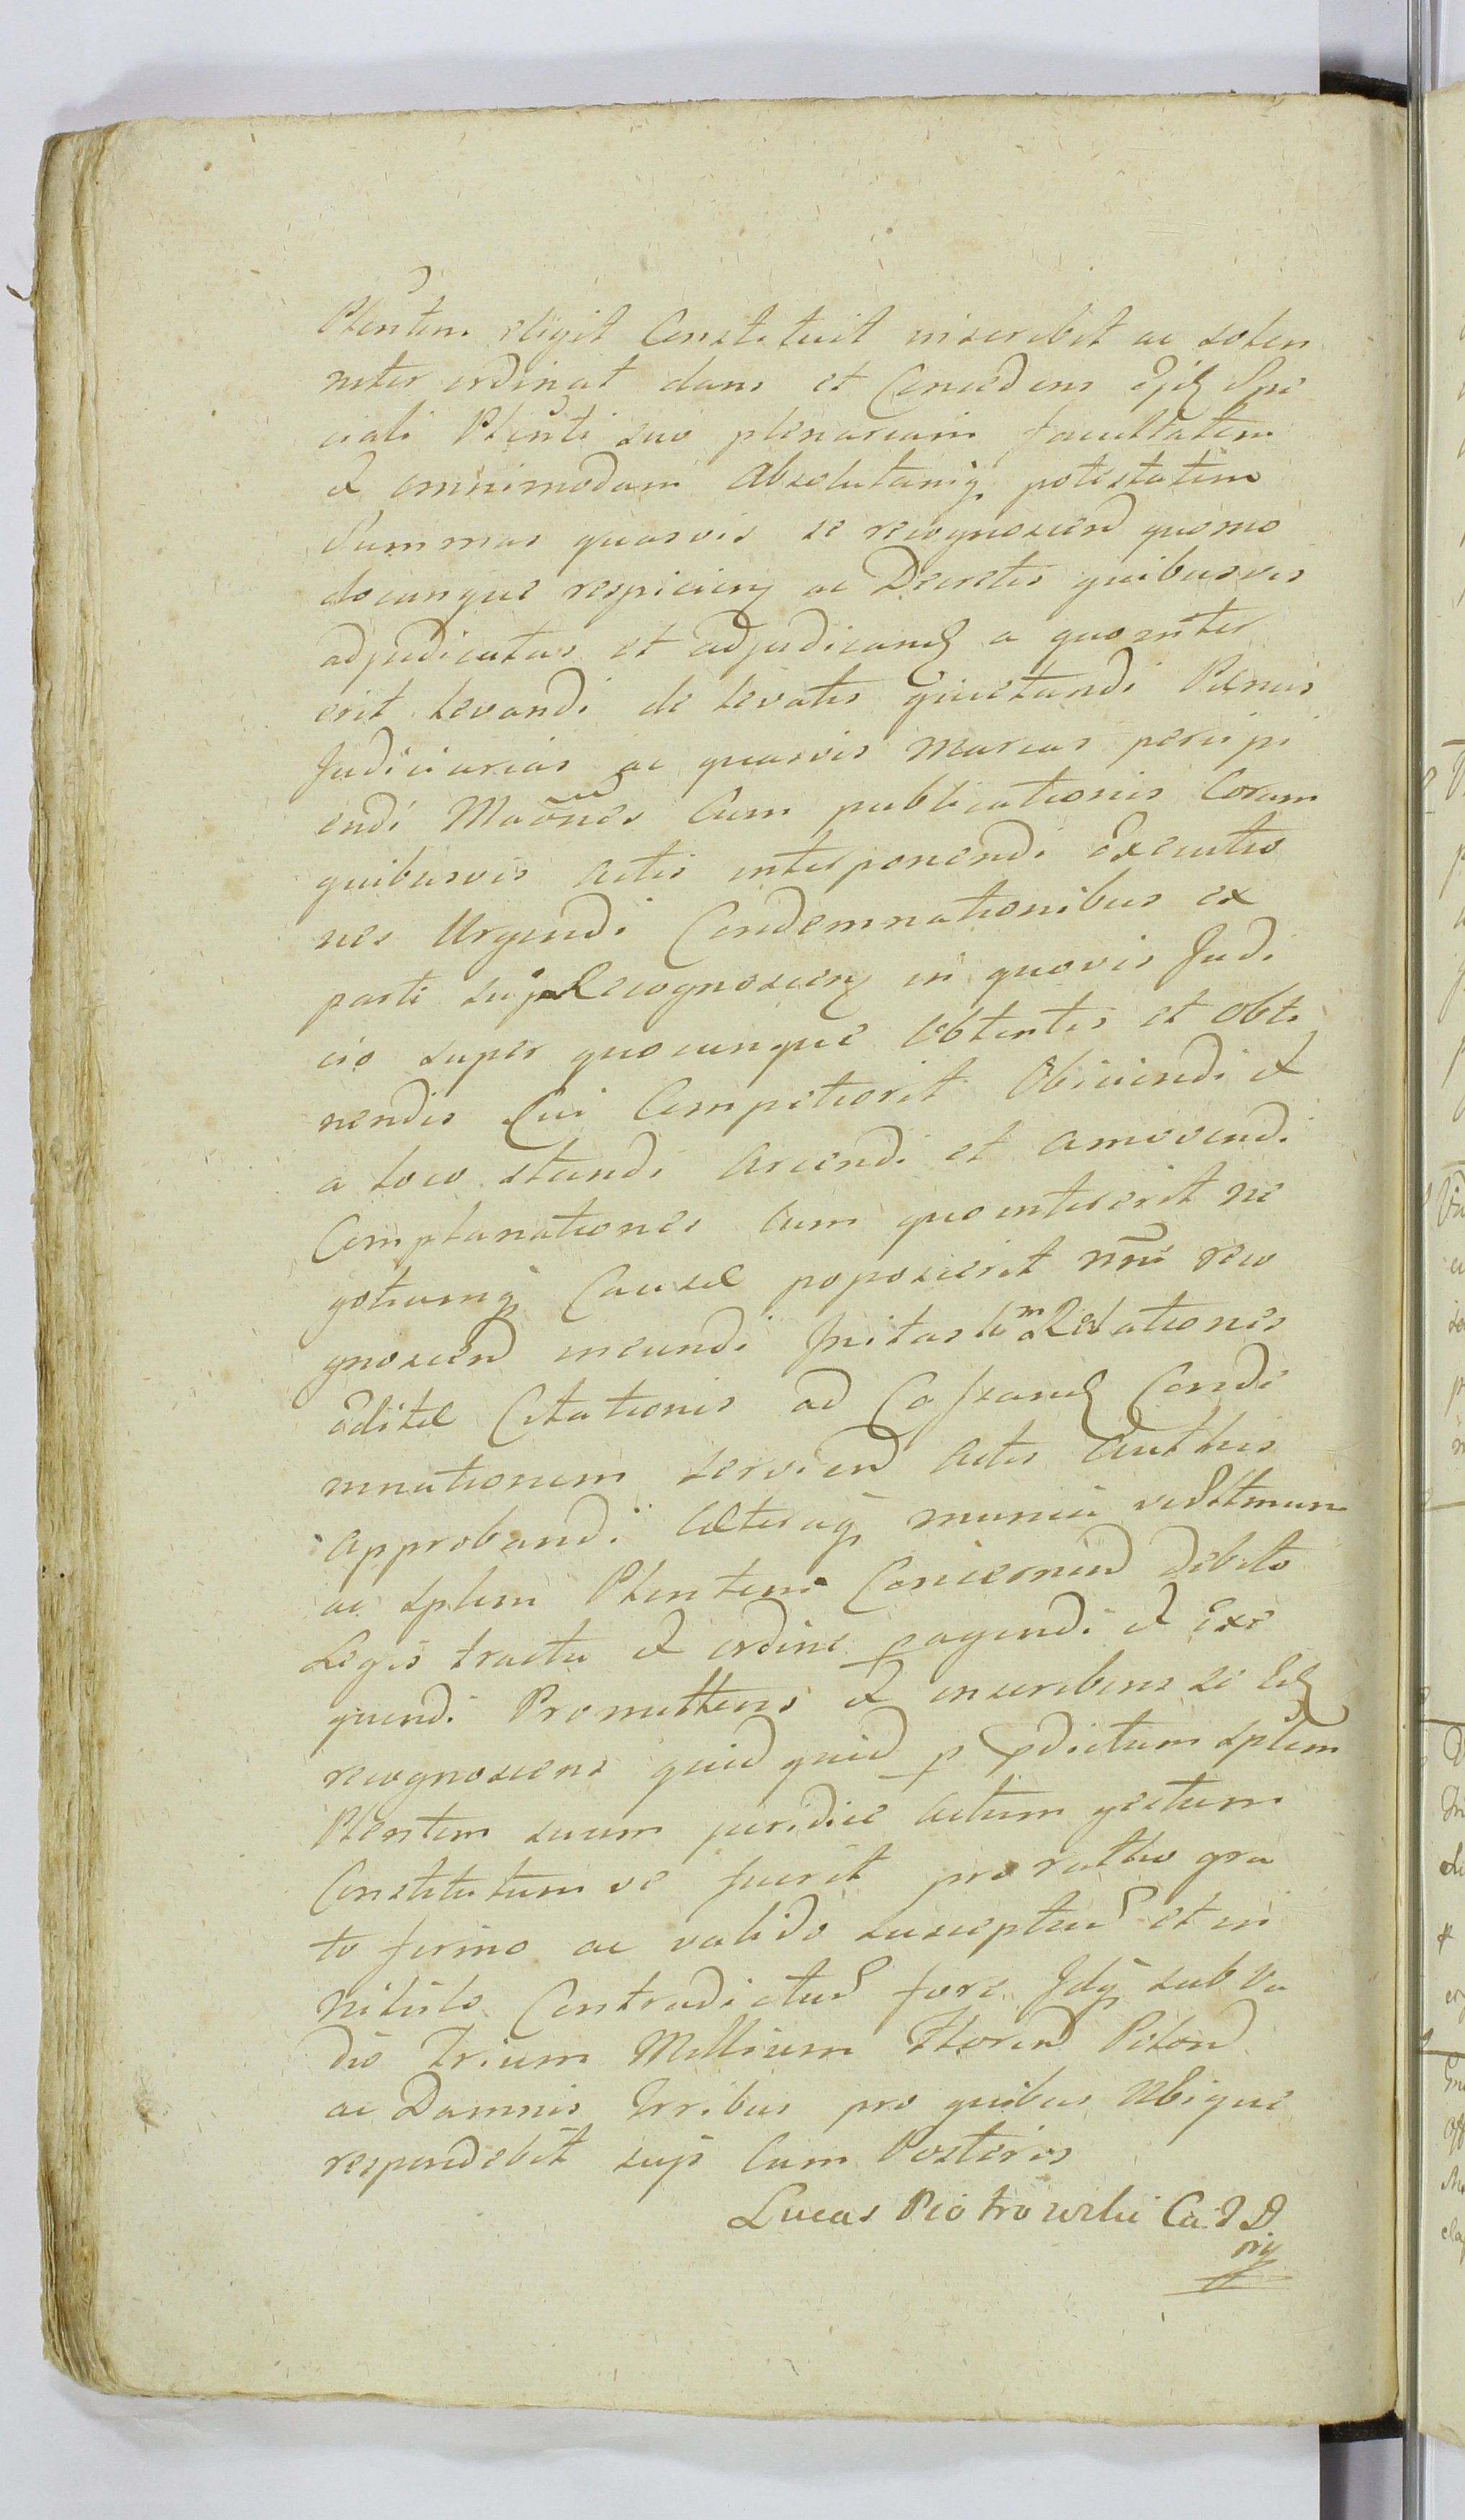 Plentem eligit Constituit inscribit ac solen
niter ordinat dans et Concedens ejd Spe
ciali Plenti suo plenariam facultatem
et omnimodam Absolutamq potestatem
Summas quasvis se recognoscend quomo
documque respicien ac Decretis quibusvis
adjudicatas et adjudicand a quo inter
erit levandi de levatis quietandi Pœnas
Judiciarias ac quasvis Marcas percipi
endi Maones Cum publicationis Coram
quibusvis Actis interponendi Executio
nes Urgendi Condemnationibus ex
parte sui Recognoscen in quovis Judi
cio super quocunque Obtentis et Obti
nendis Cui Competierit Obiiciendi et
a loco standi Arcendi et Amovendi
Complanationes Cum quo interserit ne
gotiumq Causæ poposcerit nne reco
gnoscend ineundi Initas Relationes
editæ Citationis ad Cassand Conde
mnationem serviend Actis Authis
Approbandi Cæteraq munia
ac splem Plentem Concernend debito
Legis tractu et ordine pagendi et Exe
quendi Promittens et inscribens se Id
recognoscens quid quid p pdictum splem
Plentem suum juridice Actum gestum
Constitutum ve fuerit pro ratho gra
to firmo ac valido suscepturu et in
nihilo Contradictur fore Idq sub va
dio Trium Millium Floren Polon
ac Damnis Trribus pro quibus Ubique
respondebit suis Cum Posteris
Lucas Piotrowski Ca. J D